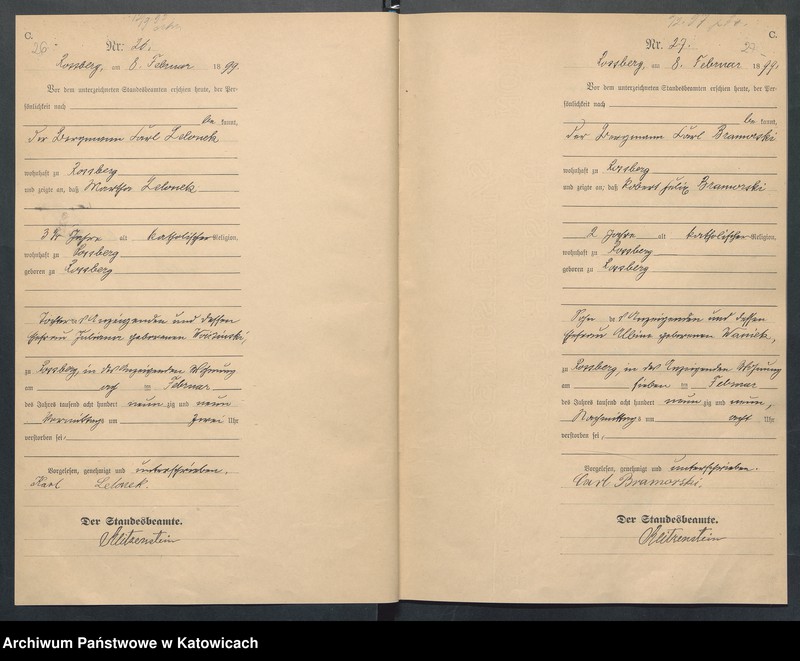 C.
26
Nr. 26.
Rossberg, am 8. Februar 1899.
Vor dem unterzeichneten Standesbeamten erschien heute, der Per-
sönlichkeit nach
be kannt,
der Bergmann Carl Lelonek
wohnhaft zu Rossberg
und zeigte an, daß Martha Lelonek
3 Jahre alt katholischer Religion,
wohnhaft zu Rossberg
geboren zu Rossberg
Tochter des Anzeigenden und dessen
Ehefrau Juliana geborenen
zu Rossberg, in des Anzeigenden Wohnung
am acht ten Februar
des Jahres tausend acht hundert neun zig und neun
Vormittags um zwei Uhr
verstorben sei,
Vorgelesen, genehmigt und unterschrieben.
Karl Lelonek.
Der Standesbeamte.
Klitzenstein
C.
27
Nr. 27.
Rossberg, am 8. Februar 1899.
Vor dem unterzeichneten Standesbeamten erschien heute, der Per-
sönlichkeit nach
be kannt,
der Bergmann Carl Bramorski
wohnhaft zu Rossberg
und zeigte an, daß Robert Felix Bramorski
2 Jahre alt katholischer Religion,
wohnhaft zu Rossberg
geboren zu Rossberg
Sohn des Anzeigenden und dessen
Ehefrau Albine geborenen
zu Rossberg, in des Anzeigenden Wohnung
am sieben ten Februar
des Jahres tausend acht hundert neun zig und neun,
Nachmittags um acht Uhr
verstorben sei,
Vorgelesen, genehmigt und unterschrieben.
Carl Bramorski.
Der Standesbeamte.
Klitzenstein
Archiwum Państwowe w Katowicach